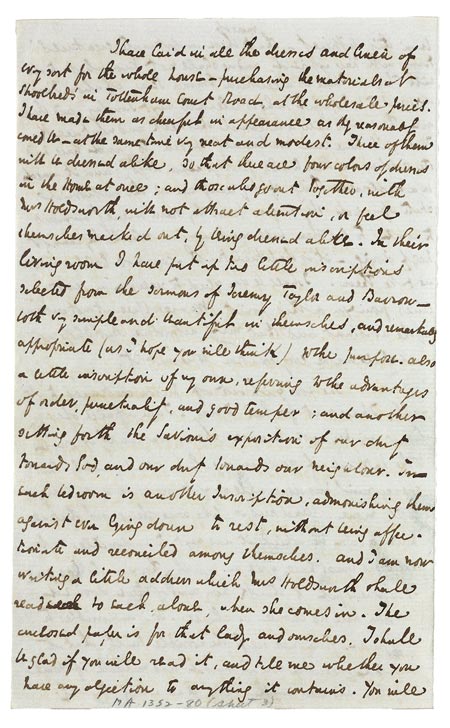 I have laid in all the dresses and linen of
every sort for the whole house – purchasing the materials at
Shoolbred's in Tottenham Court Road, at the wholesale prices.
I have made them as cheerful in appearance as they reasonably
could be – at the same time very neat and modest. Three of them
will be dressed alike, so that there are four colors of dresses
in the Home at once; and those who go out together, with
Mrs Holdsworth, will not attract attention, or feel
themselves marked out, by being dressed alike. In their
living room I have put up two little inscriptions
selected from the sermons of Jeremy Taylor and Barrow –
both very simple and beautiful in themselves, and remarkably
appropriate (as I hope you will think) to the purpose. also
a little inscription of my own, referring to the advantages
of order, punctuality, and good temper; and another
setting forth the Saviour's exposition of our duty
towards God, and our duty towards our neighbour. In
each bedroom is another Inscription, admonishing them
against ever lying down to rest, without being affec-
tionate and reconciled among themselves. And I am now
writing a little address which Mrs Holdsworth shall
read to each, alone, when she comes in. The
enclosed paper is for that lady and ourselves. I shall
be glad if you will read it, and tell me whether you
have any objection to anything it contains. You will
MA 1352-80 (sheet 2)